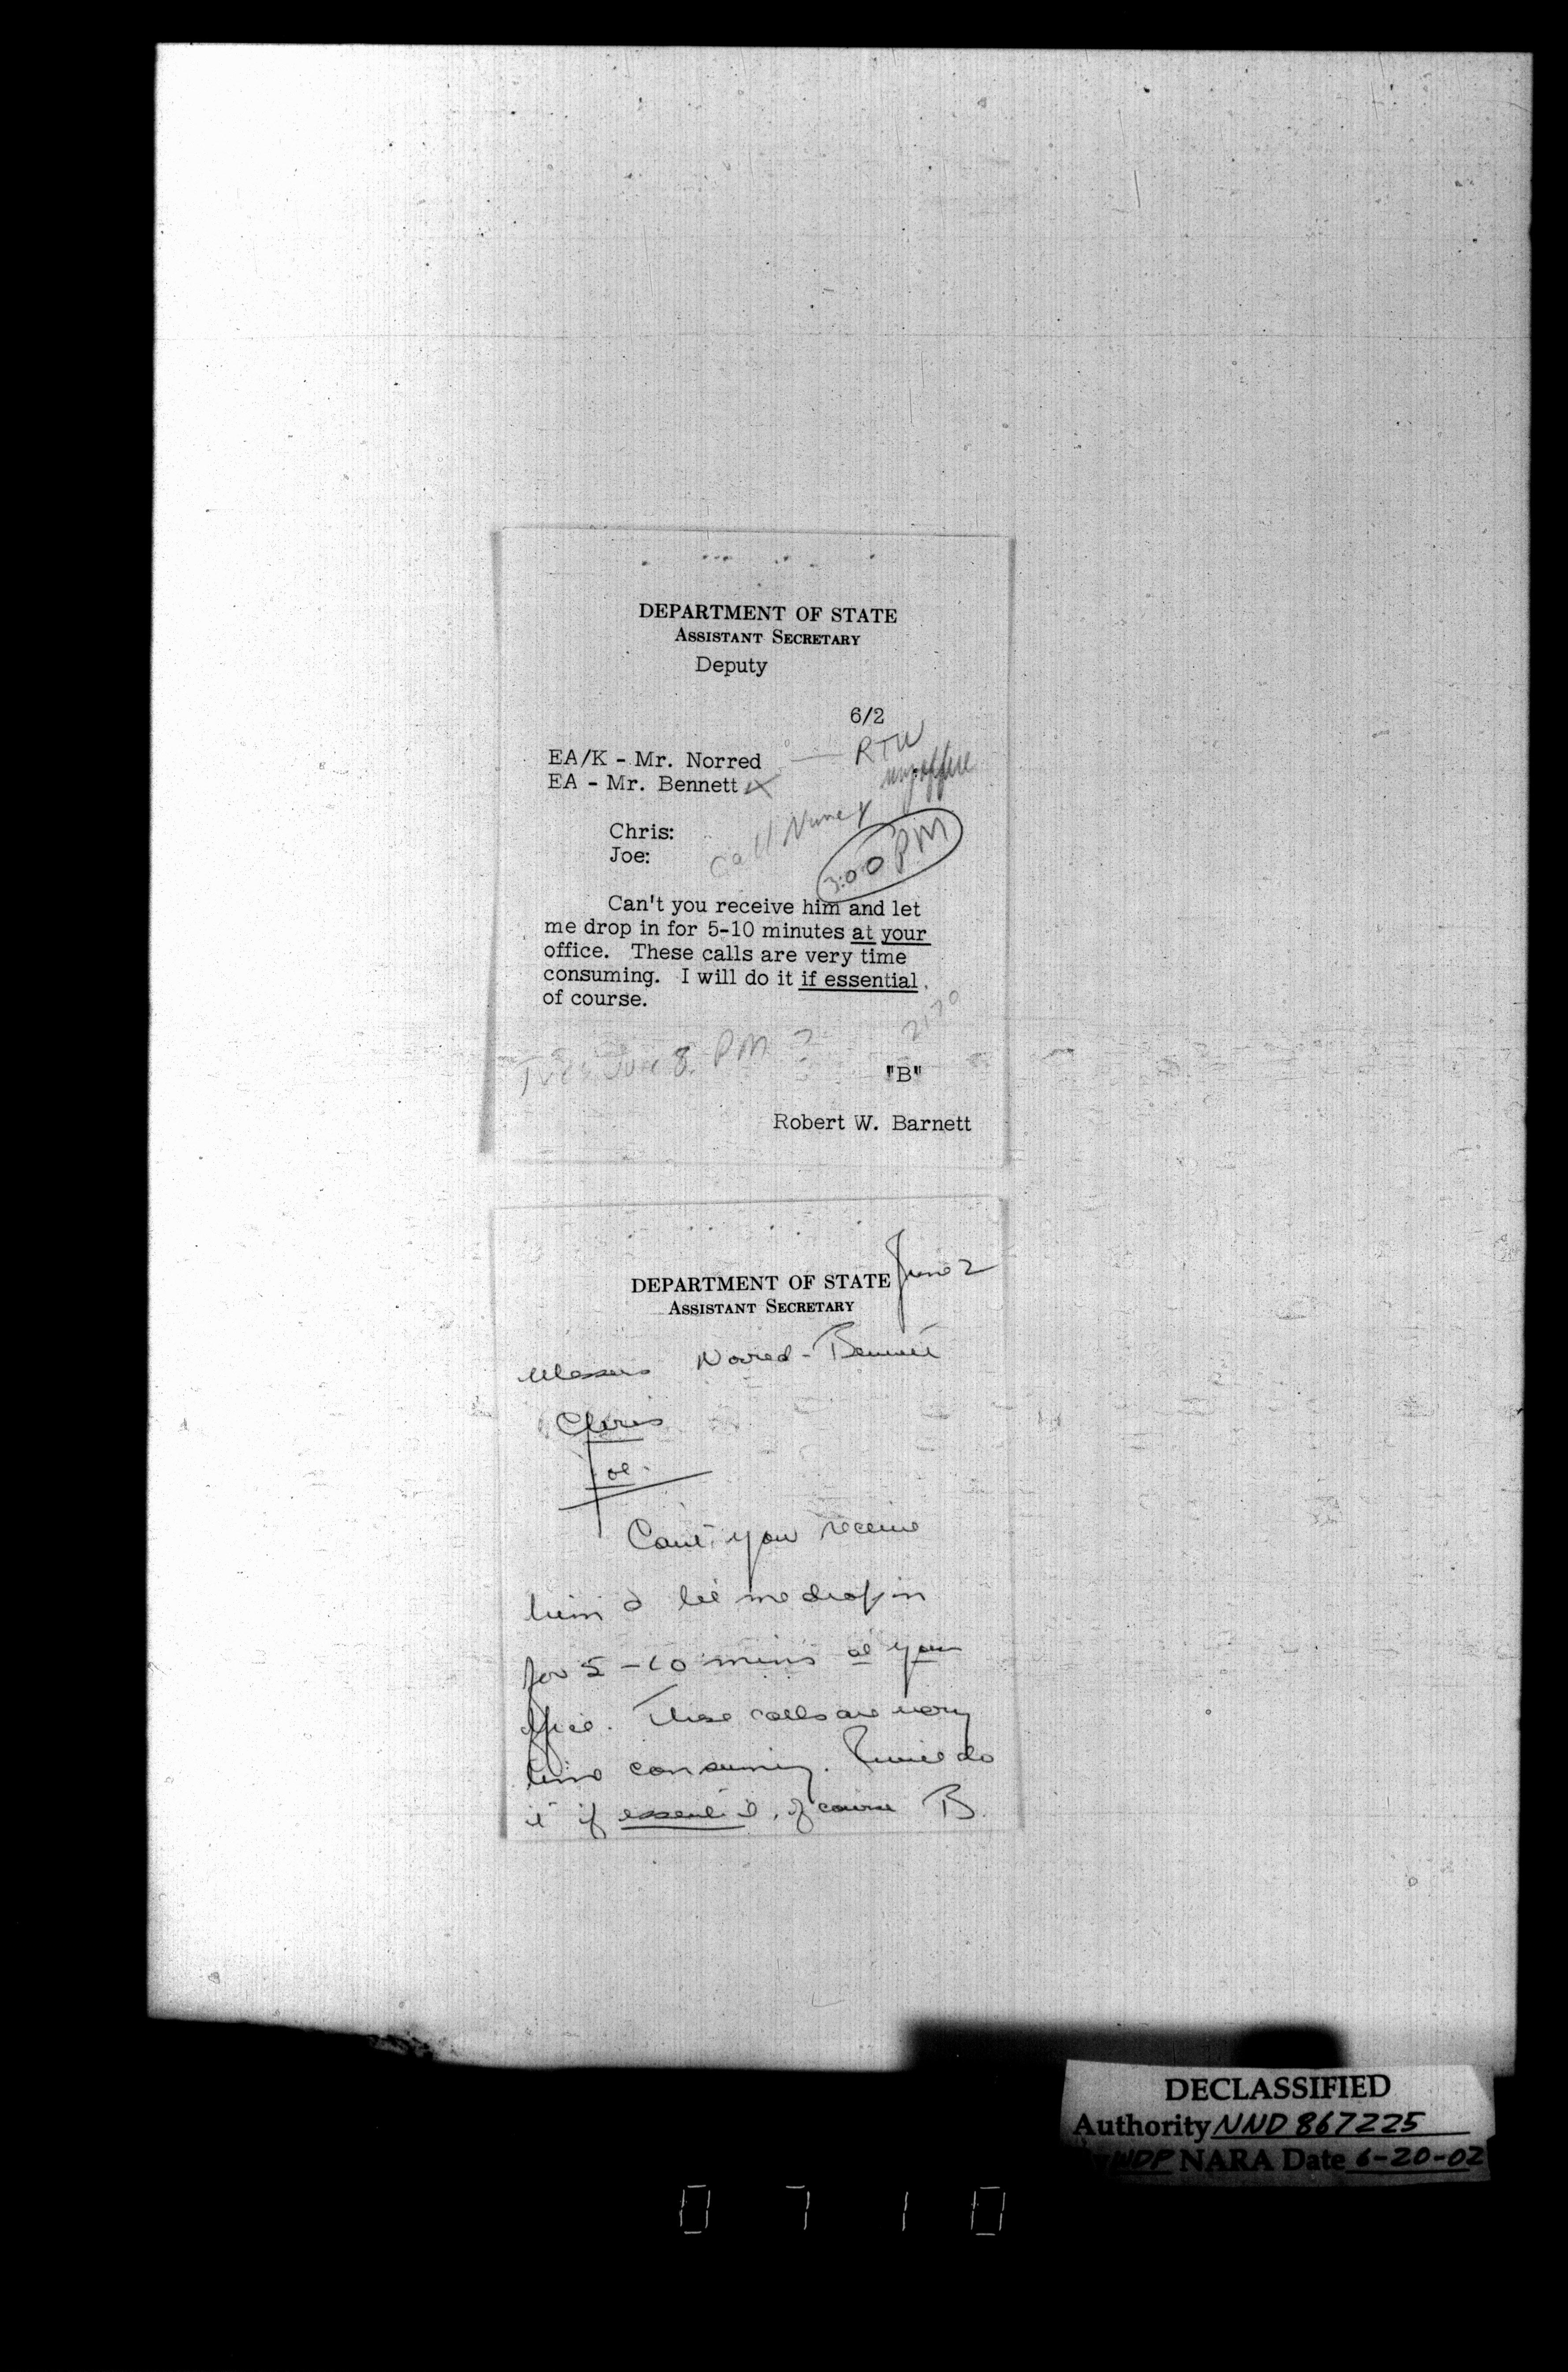 DEPARTMENT OF STATE
ASSISTANT SECRETARY
Deputy
6/2
EA/K - Mr. Norred — RTW
EA - Mr. Bennett my office
Call Nancy
Chris:
Joe:
3:00 PM
Can't you receive him and let
me drop in for 5-10 minutes at your
office. These calls are very time
consuming. I will do it if essential,
of course.
Tues June 8 PM ?
"B"
Robert W. Barnett
DEPARTMENT OF STATE June 2
ASSISTANT SECRETARY
Messrs Norred - Bennett
Chris
Joe.
Can't you receive
him & let me drop in
for 5-10 mins at your
office. These calls are very
time consuming. I will do
it if essential, of course B.
DECLASSIFIED
Authority NND 867225
WDP NARA Date 6-20-02
0710